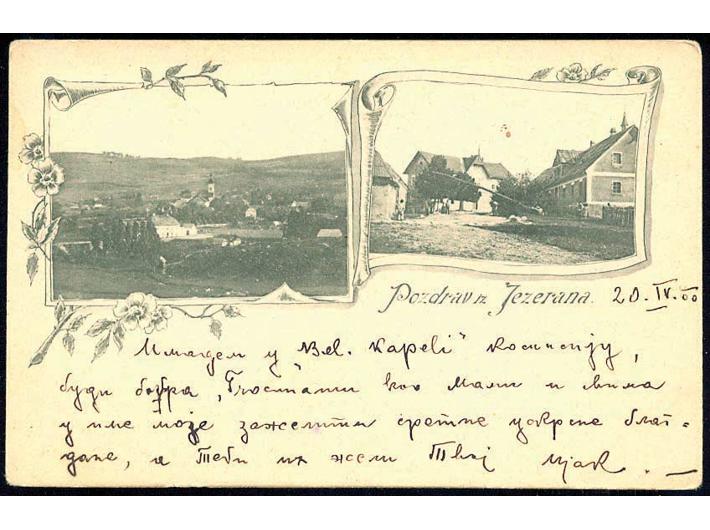 Pozdrav iz Jezerana.
20. IV. 00
Имадем у „Vel. Kapeli" комисију,
буди добра, као Мами и свима
у име моје зажелити сретне ускрсне благ-
дане, а Теби их жели Твој